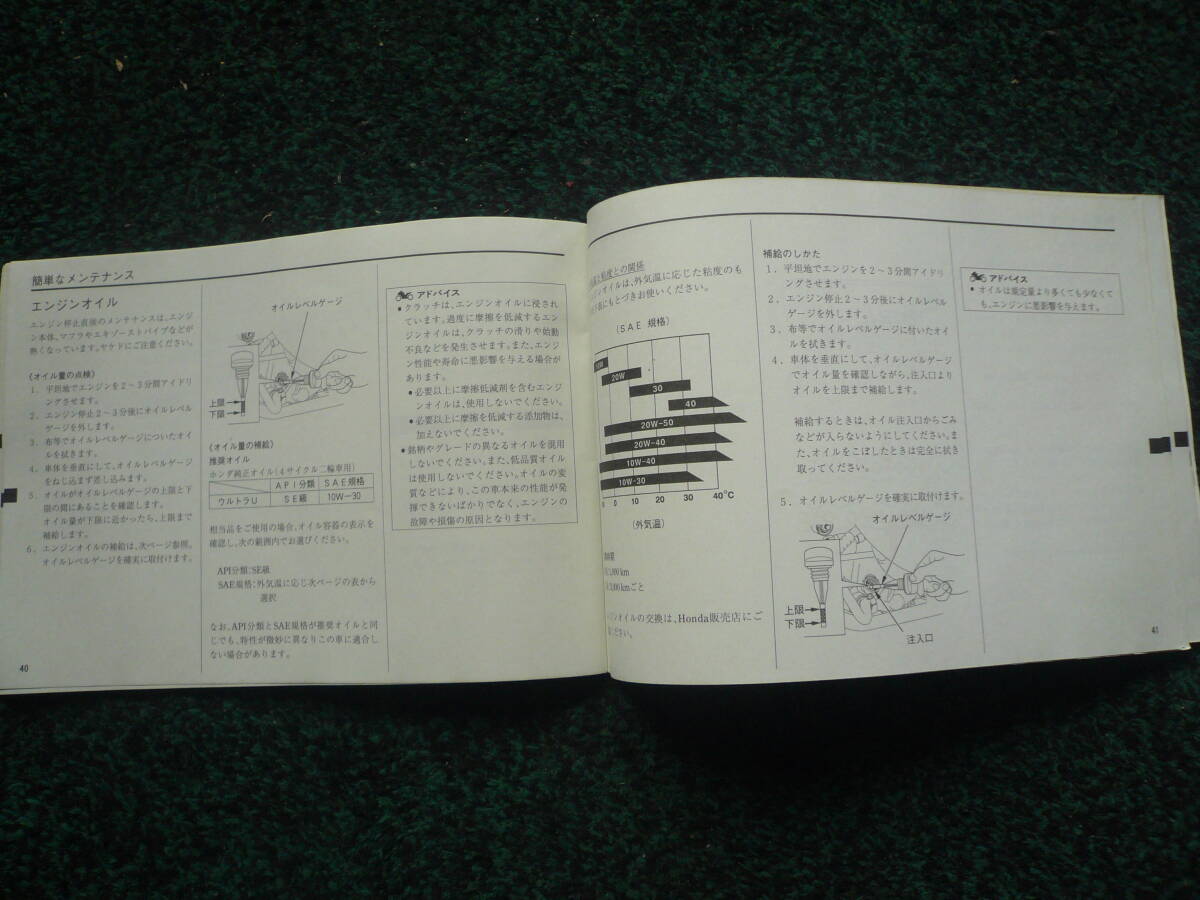 簡単なメンテナンス
エンジンオイル
エンジン停止直後のメンテナンスは、エンジ
ン本体、マフラやエキゾーストパイプなどが
熱くなっています。ヤケドにご注意ください。
《オイル量の点検》
1. 平坦地でエンジンを2～3分間アイドリ
ングさせます。
2. エンジン停止2～3分後にオイルレベル
ゲージを外します。
3. 布等でオイルレベルゲージについたオイ
ルを拭きます。
4. 車体を垂直にして、オイルレベルゲージ
をねじ込まず差し込みます。
5. オイルがオイルレベルゲージの上限と下
限の間にあることを確認します。
オイル量が下限に近かったら、上限まで
補給します。
6. エンジンオイルの補給は、次ページ参照。
オイルレベルゲージを確実に取付けます。
40
オイルレベルゲージ
上限
下限
《オイル量の補給》
推奨オイル
ホンダ純正オイル(4サイクル二輪車用)
API分類 SAE規格
ウルトラU SE級 10W-30
相当品をご使用の場合、オイル容器の表示を
確認し、次の範囲内でお選びください。
API分類:SE級
SAE規格:外気温に応じ次ページの表から
選択
なお、API分類とSAE規格が推奨オイルと同
じでも、特性が微妙に異なりこの車に適合し
ない場合があります。
アドバイス
●クラッチは、エンジンオイルに浸され
ています。過度に摩擦を低減するエン
ジンオイルは、クラッチの滑りや始動
不良などを発生させます。また、エンジ
ン性能や寿命に悪影響を与える場合が
あります。
●必要以上に摩擦低減剤を含むエンジ
ンオイルは、使用しないでください。
●必要以上に摩擦を低減する添加物は、
加えないでください。
●銘柄やグレードの異なるオイルを混用
しないでください。また、低品質オイル
は使用しないでください。オイルの変
質などにより、この車本来の性能が発
揮できないばかりでなく、エンジンの
故障や損傷の原因となります。
粘度との関係
ンオイルは、外気温に応じた粘度のも
下表にもとづきお使いください。
(SAE 規格)
20W
30
40
20W-50
20W-40
10W-40
10W-30
0 10 20 30 40℃
(外気温)
000km
000kmごと
ンオイルの交換は、Honda販売店にご
ください。
補給のしかた
1. 平坦地でエンジンを2～3分間アイドリ
ングさせます。
2. エンジン停止2～3分後にオイルレベル
ゲージを外します。
3. 布等でオイルレベルゲージに付いたオイ
ルを拭きます。
4. 車体を垂直にして、オイルレベルゲージ
でオイル量を確認しながら、注入口より
オイルを上限まで補給します。
補給するときは、オイル注入口からごみ
などが入らないようにしてください。ま
た、オイルをこぼしたときは完全に拭き
取ってください。
5. オイルレベルゲージを確実に取付けます。
オイルレベルゲージ
上限
下限
注入口
アドバイス
●オイルは規定量より多くても少なくて
も、エンジンに悪影響を与えます。
41